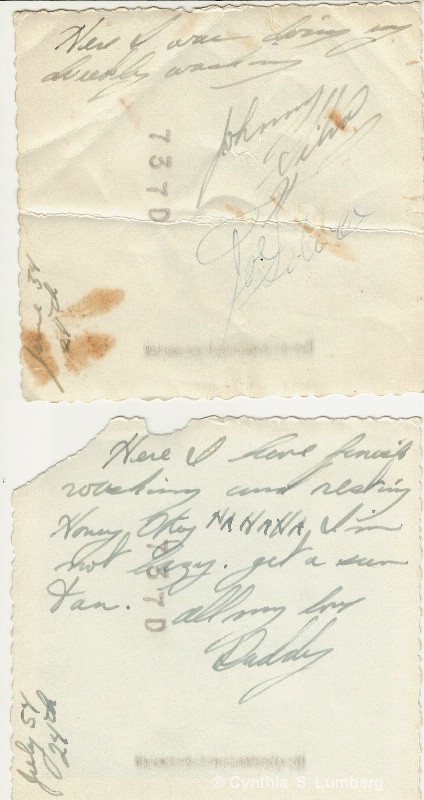 Here I was doing my
weekly washing
Johnny
Silva
Joe
737D
June 54
Here I have finish
washing and resting
Honey HAHAHA I'm
not lazy. get a sun
tan. all my love
Daddy
737D
July 54
24th
© Cynthia S. Lumberg